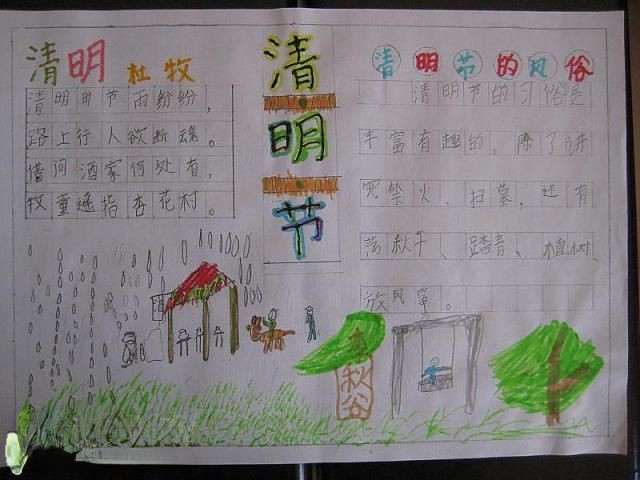 清明 杜牧
清明时节雨纷纷，
路上行人欲断魂。
借问酒家何处有，
牧童遥指杏花村。
清·明·节
清明节的风俗
清明节的习俗是
丰富有趣的，除了讲
究禁火、扫墓，还有
荡秋千、踏青、植树、
放风筝。
秋谷